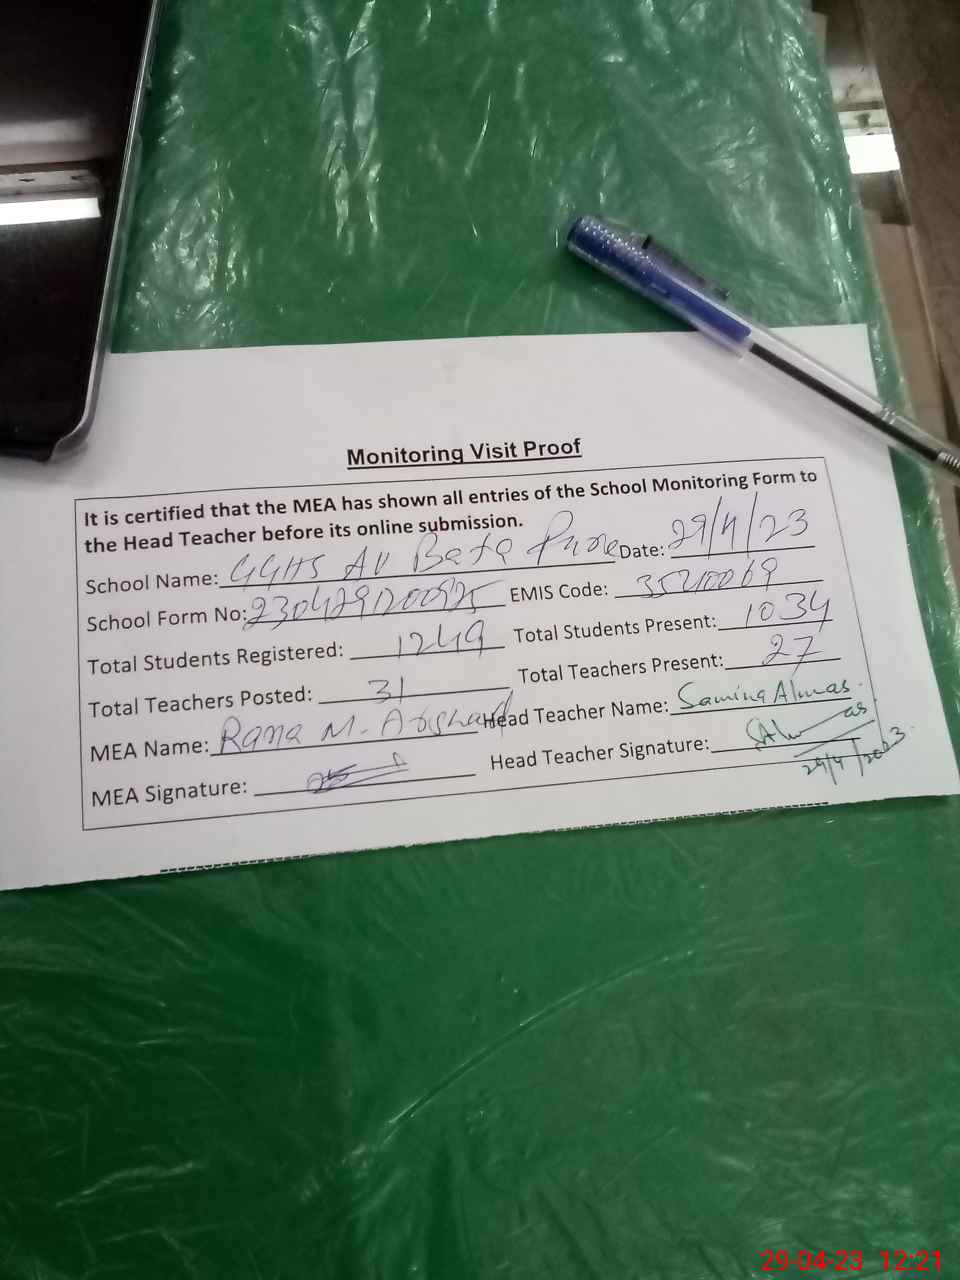 Monitoring Visit Proof
It is certified that the MEA has shown all entries of the School Monitoring Form to
the Head Teacher before its online submission.
School Name: GGHS AV Bata Pure Date: 29/4/23
School Form No: EMIS Code: 35210069
Total Students Registered: 1249 Total Students Present: 1034
Total Teachers Posted: 31 Total Teachers Present: 27
MEA Name: Rana M. Head Teacher Name: Samina Almas
MEA Signature: Head Teacher Signature:
29/4/2023
29-04-23 12:21